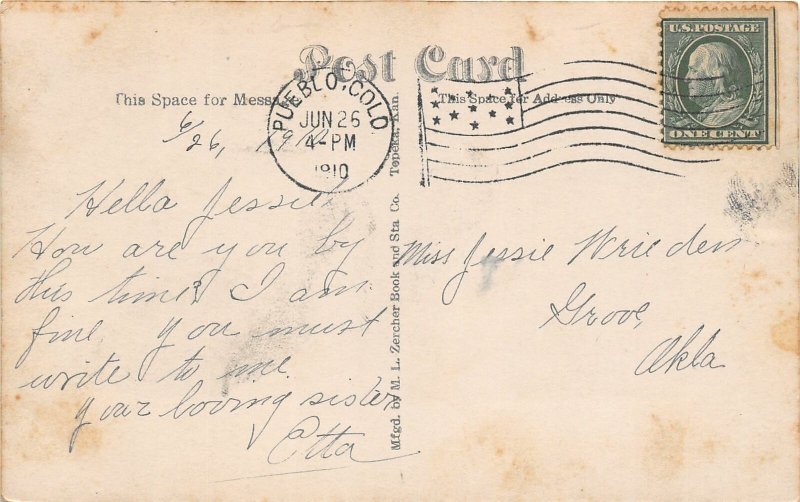 Post Card
This Space for Message
This Space for Address Only
PUEBLO, COLO
JUN 26
4-PM
1910
U.S. POSTAGE
ONE CENT
6/26, 1910
Hello Jessie
How are you by
this time? I am
fine. you must
write to me
your loving sister
Etta
Mfgd. by M. L. Zercher Book and Sta. Co. Topeka, Kan.
Miss Jessie Wrieden
Grove,
Okla